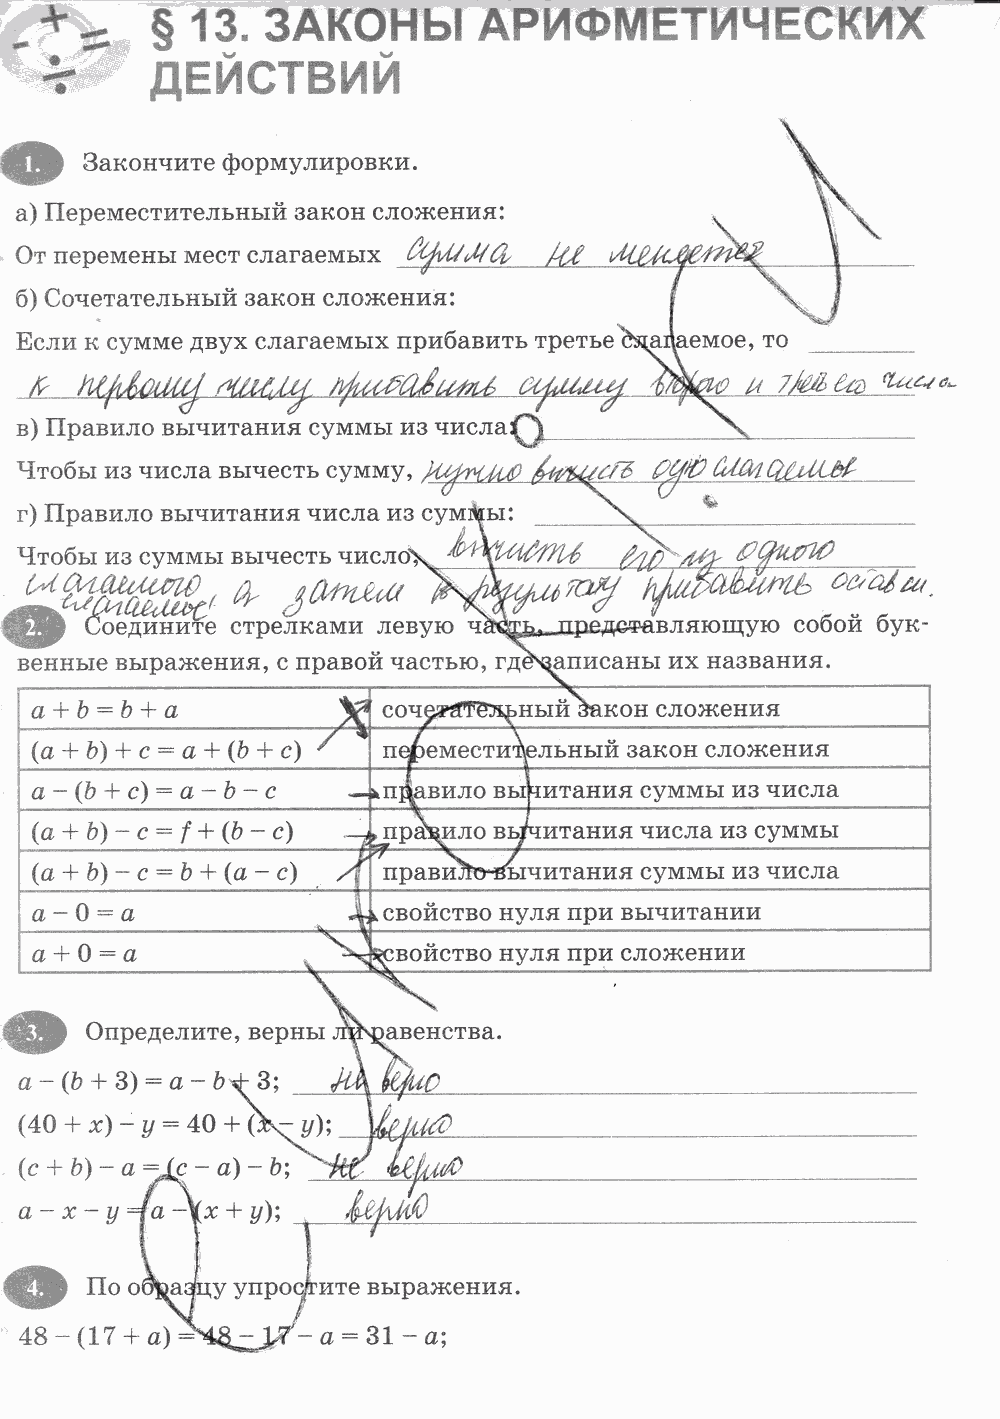 § 13. ЗАКОНЫ АРИФМЕТИЧЕСКИХ
ДЕЙСТВИЙ
1. Закончите формулировки.
а) Переместительный закон сложения:
От перемены мест слагаемых сумма не меняется
б) Сочетательный закон сложения:
Если к сумме двух слагаемых прибавить третье слагаемое, то
к первому числу прибавить сумму второго и третьего числа
в) Правило вычитания суммы из числа:
Чтобы из числа вычесть сумму, нужно вычисть слагаемые
г) Правило вычитания числа из суммы:
Чтобы из суммы вычесть число, вычисть его из одного
слагаемого а затем к результату прибавить оставш.
слагаемое
2. Соедините стрелками левую часть, представляющую собой бук-
венные выражения, с правой частью, где записаны их названия.
a + b = b + a сочетательный закон сложения
(a + b) + c = a + (b + c) переместительный закон сложения
a − (b + c) = a − b − c правило вычитания суммы из числа
(a + b) − c = f + (b − c) правило вычитания числа из суммы
(a + b) − c = b + (a − c) правило вычитания суммы из числа
a − 0 = a свойство нуля при вычитании
a + 0 = a свойство нуля при сложении
3. Определите, верны ли равенства.
a − (b + 3) = a − b + 3; не верно
(40 + x) − y = 40 + (x − y); верно
(c + b) − a = (c − a) − b; не верно
a − x − y = a − (x + y); верно
4. По образцу упростите выражения.
48 − (17 + a) = 48 − 17 − a = 31 − a;